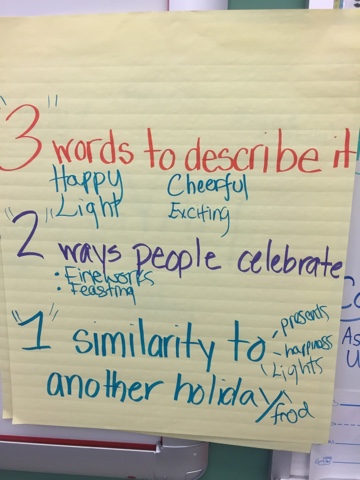 "3" words to describe it
Happy Cheerful
Light Exciting
"2" ways people celebrate
• Fireworks
• Feasting
"1" similarity to
presents
happness
Lights
another holiday
food
Co
As
U